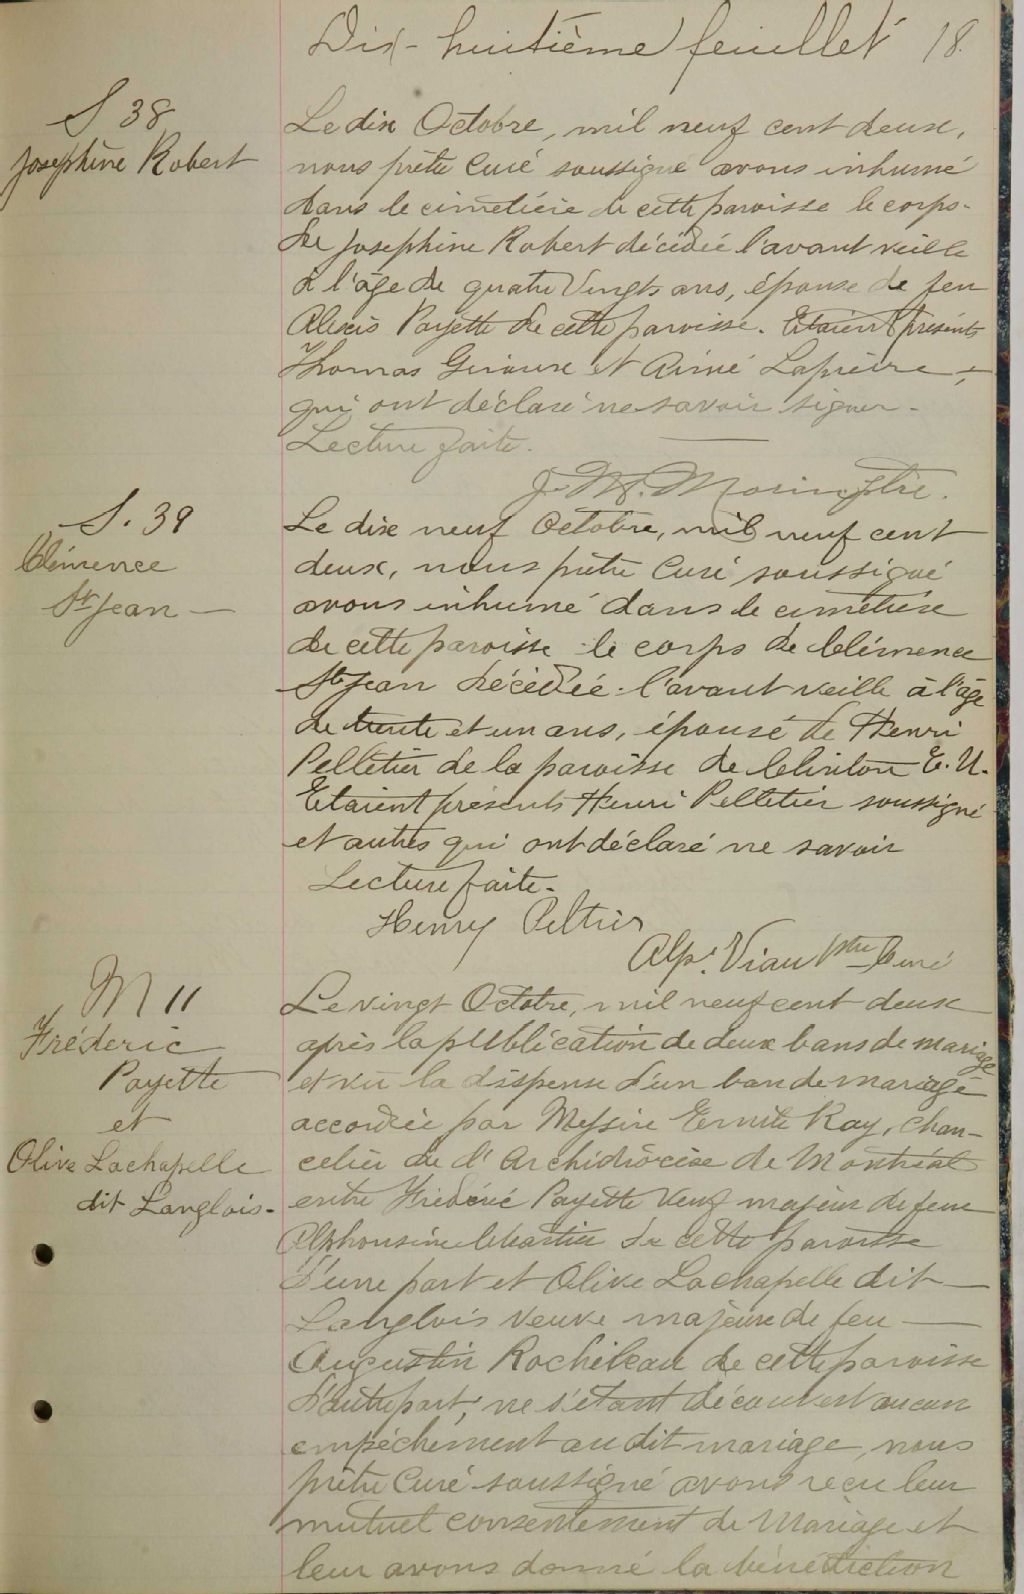 Dix-huitième feuillet 18.
S 38
Josephine Robert
Le dix Octobre, mil neuf cent deux,
nous prêtre Curé soussigné avons inhumé
dans le cimetière de cette paroisse le corps
de Josephine Robert décédée l'avant veille
à l'âge de quatre vingts ans, épouse de feu
Alexis Payette de cette paroisse. Etaient présents
Thomas Giroux et Aimé Lapierre,
qui ont déclaré ne savoir signer.
Lecture faite.
J. M. Morin ptre.
S. 39
Clémence
St Jean
Le dix neuf Octobre, mil neuf cent
deux, nous prêtre Curé soussigné
avons inhumé dans le cimetière
de cette paroisse le corps de Clémence
St Jean décédée l'avant veille à l'âge
de trente et un ans, épouse de Henri
Pelletier de la paroisse de Clinton E. U.
Etaient présents Henri Pelletier soussigné
et autres qui ont déclaré ne savoir
Lecture faite.
Henry Peltier
Alp. Viau Ptre Curé
M 11
Fréderic
Payette
et
Olive Lachapelle
dit Langlois.
Le vingt Octobre, mil neuf cent deux
après la publication de deux bans de mariage
et vu la dispense d'un ban de mariage
accordée par Messire Emile Roy, chan-
celier de l'Archidiocèse de Montréal
entre Fréderic Payette veuf majeur de feue
Alphonsine Chartier de cette paroisse
d'une part et Olive Lachapelle dit
Langlois veuve majeure de feu
Augustin Rochileau de cette paroisse
d'autre part; ne s'étant découvert aucun
empêchement au dit mariage, nous
prêtre Curé soussigné avons reçu leur
mutuel consentement de Mariage et
leur avons donné la bénédiction